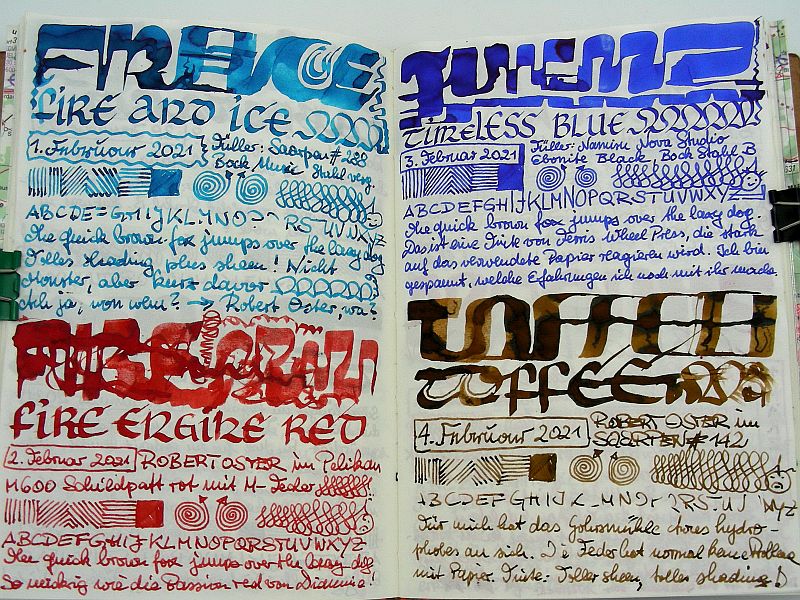 FIRE AND ICE
1. Februar 2021
Füller: Saarpen # 288
Bock Music Stahl verg.
ABCDEFGHIJKLMNO RSTUVWXYZ
The quick brown fox jumps over the lazy dog
Tolles shading plus sheen! Nicht
Monster, aber kurz davor
Ach ja, von wem? → Robert Oster, wa?
FIRE ENGINE RED
2. Februar 2021 ROBERT OSTER im Pelikan
M600 Schildpatt rot mit M-Feder
ABCDEFGHIJKLMNOPQRSTUVWXYZ
The quick brown fox jumps over the lazy dog.
So wie die Passion red von Diamine!
TIMELESS BLUE
3. Februar 2021
Füller: Namisu Nova Studio
Ebonite Black, Bock Stahl B
ABCDEFGHIJKLMNOPQRSTUVWXYZ
The quick brown fox jumps over the lazy dog.
Das ist eine Tinte von Ferris Wheel Press, die stark
auf das verwendete Papier reagieren wird. Ich bin
gespannt, welche Erfahrungen ich noch mit ihr mache.
TOFFEE
TOFFEE
4. Februar 2021
ROBERT OSTER im
# 142
ABCDEFGHIJK LMNO QRSTU WXYZ
Für mich hat das Gohrsmühle etwas hydro-
phobes an sich. Die Feder hat normal keine Probleme
mit Papier. Tinte: Toller sheen, toller shading!